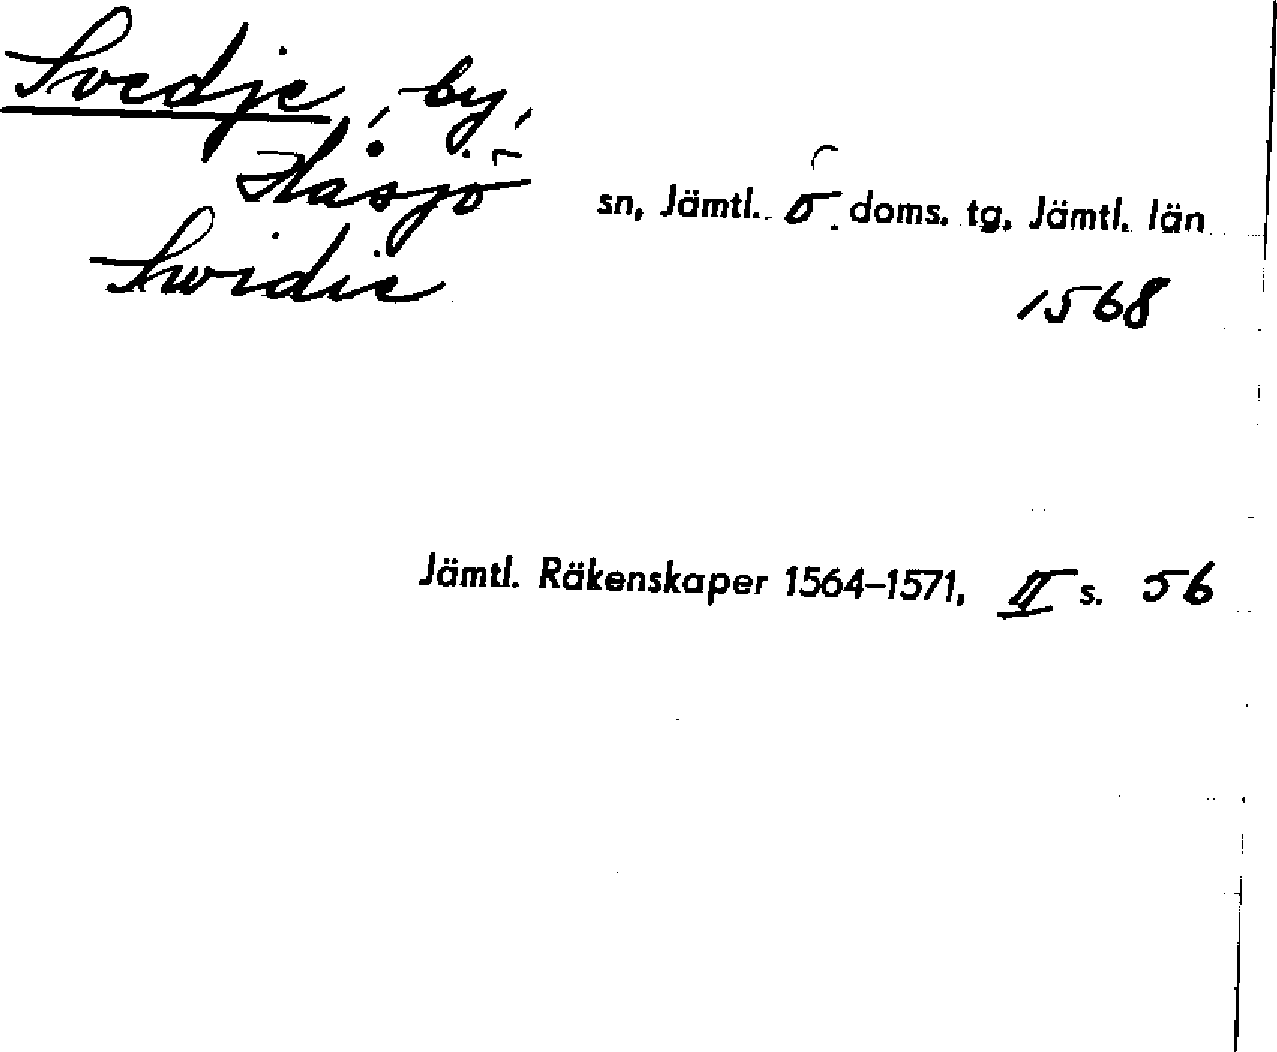 Svedje, by,
Håsjö sn, Jämtl. ö. doms. tg, Jämtl. län
Swidie
1568
Jämtl. Räkenskaper 1564–1571, II s. 56